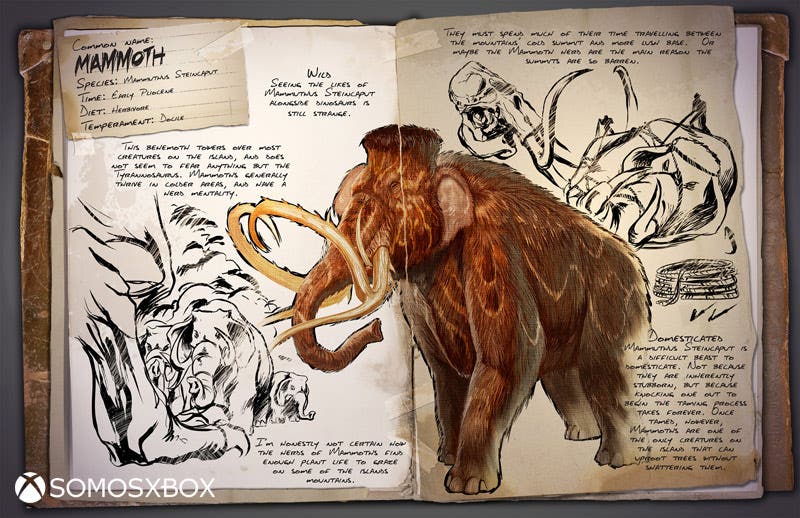 Common name:
MAMMOTH
Species: Mammuthus Steincaput
Time: Early Pliocene
Diet: Herbivore
Temperament: Docile
Wild
Seeing the likes of
Mammuthus Steincaput
alongside dinosaurs is
still strange.
This behemoth towers over most
creatures on the island, and does
not seem to fear anything but the
Tyrannosaurus. Mammoths generally
thrive in colder areas, and have a
herd mentality.
I'm honestly not certain how
the herds of Mammoths find
enough plant life to graze
on some of the islands
mountains.
They must spend much of their time travelling between
the mountains, cold summit and more lush base. Or
maybe the Mammoth herd are the main reason the
summits are so barren.
Domesticated
Mammuthus Steincaput is
a difficult beast to
domesticate. Not because
they are inherently
stubborn, but because
knocking one out to
begin the taming process
takes forever. Once
tamed, however,
Mammoths are one of
the only creatures on
the island that can
uproot trees without
shattering them.
SOMOSXBOX